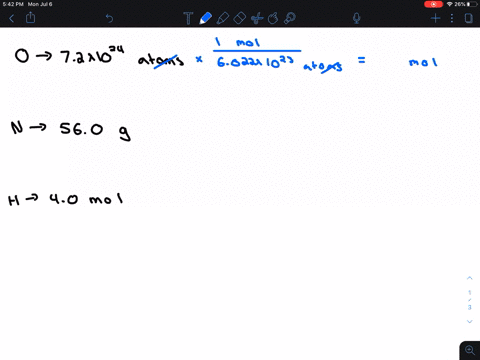 5:42 PM Mon Jul 6
26%
O → 7.2×10²⁴ atoms × 1 mol / 6.022×10²³ atoms = mol
N → 56.0 g
H → 4.0 mol
1
3